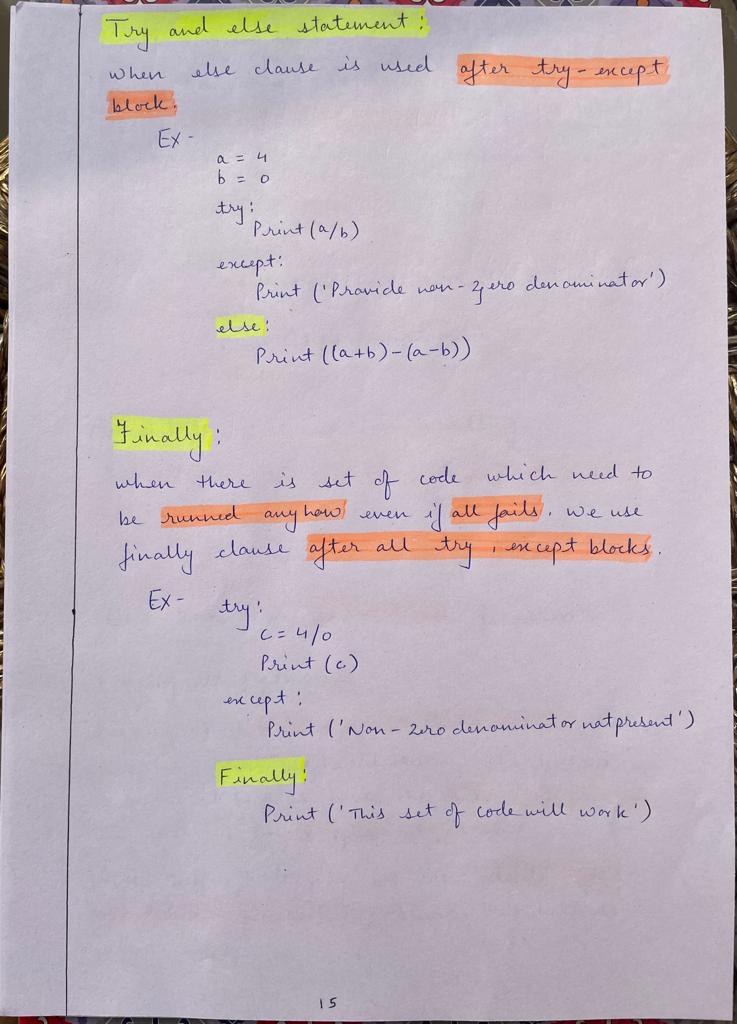 Try and else statement:
When else clause is used after try-except
block.
Ex -
a = 4
b = 0
try:
Print (a/b)
except:
Print ('Provide non-zero denominator')
else:
Print ((a+b)-(a-b))
Finally:
when there is set of code which need to
be runned anyhow even if all fails. We use
finally clause after all try, except blocks.
Ex - try:
c = 4/0
Print (c)
except:
Print ('Non-zero denominator not present')
Finally:
Print ('This set of code will work')
15